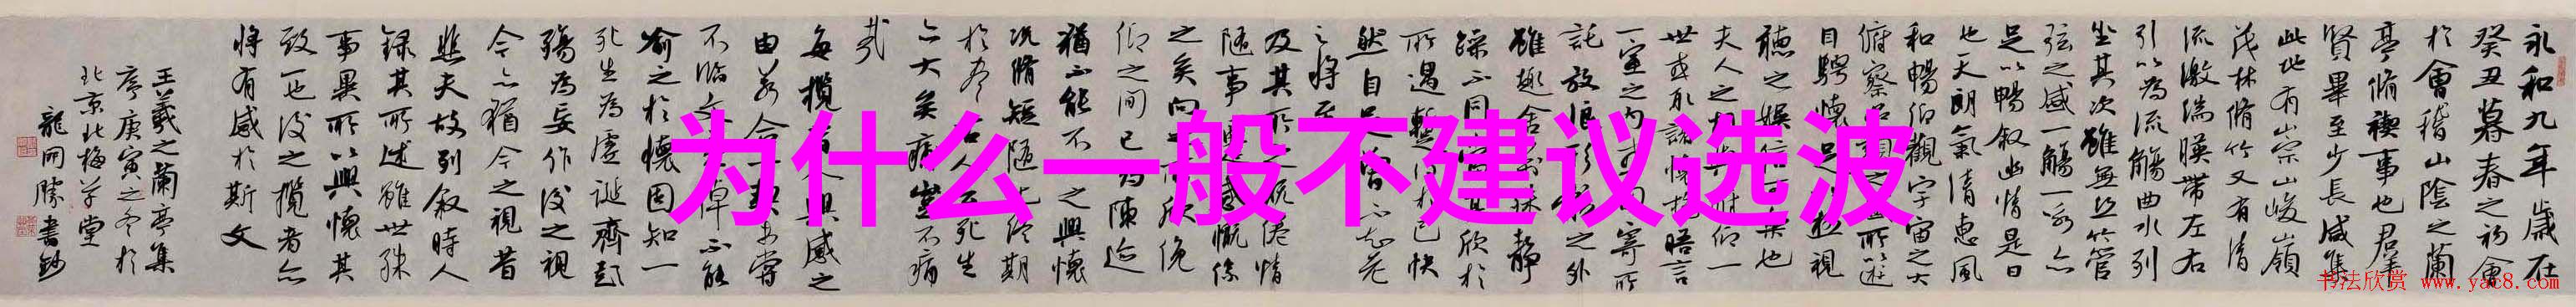 为什么一般不建议选波
永和九年歲在
癸丑暮春之初會
於會稽山陰之蘭
亭脩禊事也群
賢畢至少長咸集
此地有崇山峻嶺
茂林脩竹又有清
流激湍暎帶左右
引以為流觴曲水列
坐其次雖無絲竹管
弦之盛一觴一詠亦
足以暢叙幽情是日
也天朗氣清惠風
和暢仰觀宇宙之大
俯察品類之盛所以遊
目騁懷足以極視
聽之娛信可樂也
夫人之相與俯仰一
世或取諸懷抱晤言
一室之内或因寄所
託放浪形骸之外
雖趣舍萬殊靜
躁不同當其欣於
所遇蹔得於己快
然自足曾不知老
之將至
及其所之既倦情
隨事遷感慨係
之矣向之所欣俛
仰之間已為陳迹
猶不能不以之興懷
況脩短隨化終期
於盡古人云死生
亦大矣豈不痛
哉
每攬昔人興感之
由若合一契未嘗
不臨文嗟悼不能
喻之於懷固知一
死生為虛誕齊彭
殤為妄作後之視
今亦猶今之視昔
悲夫故列叙時人
錄其所述雖世殊
事異所以興懷其
致一也後之攬者亦
將有感於斯文
王羲之蘭亭集
序庚寅之冬於
北京北梅草堂
龍開勝書鈔
书法欣赏 www.yac8.com